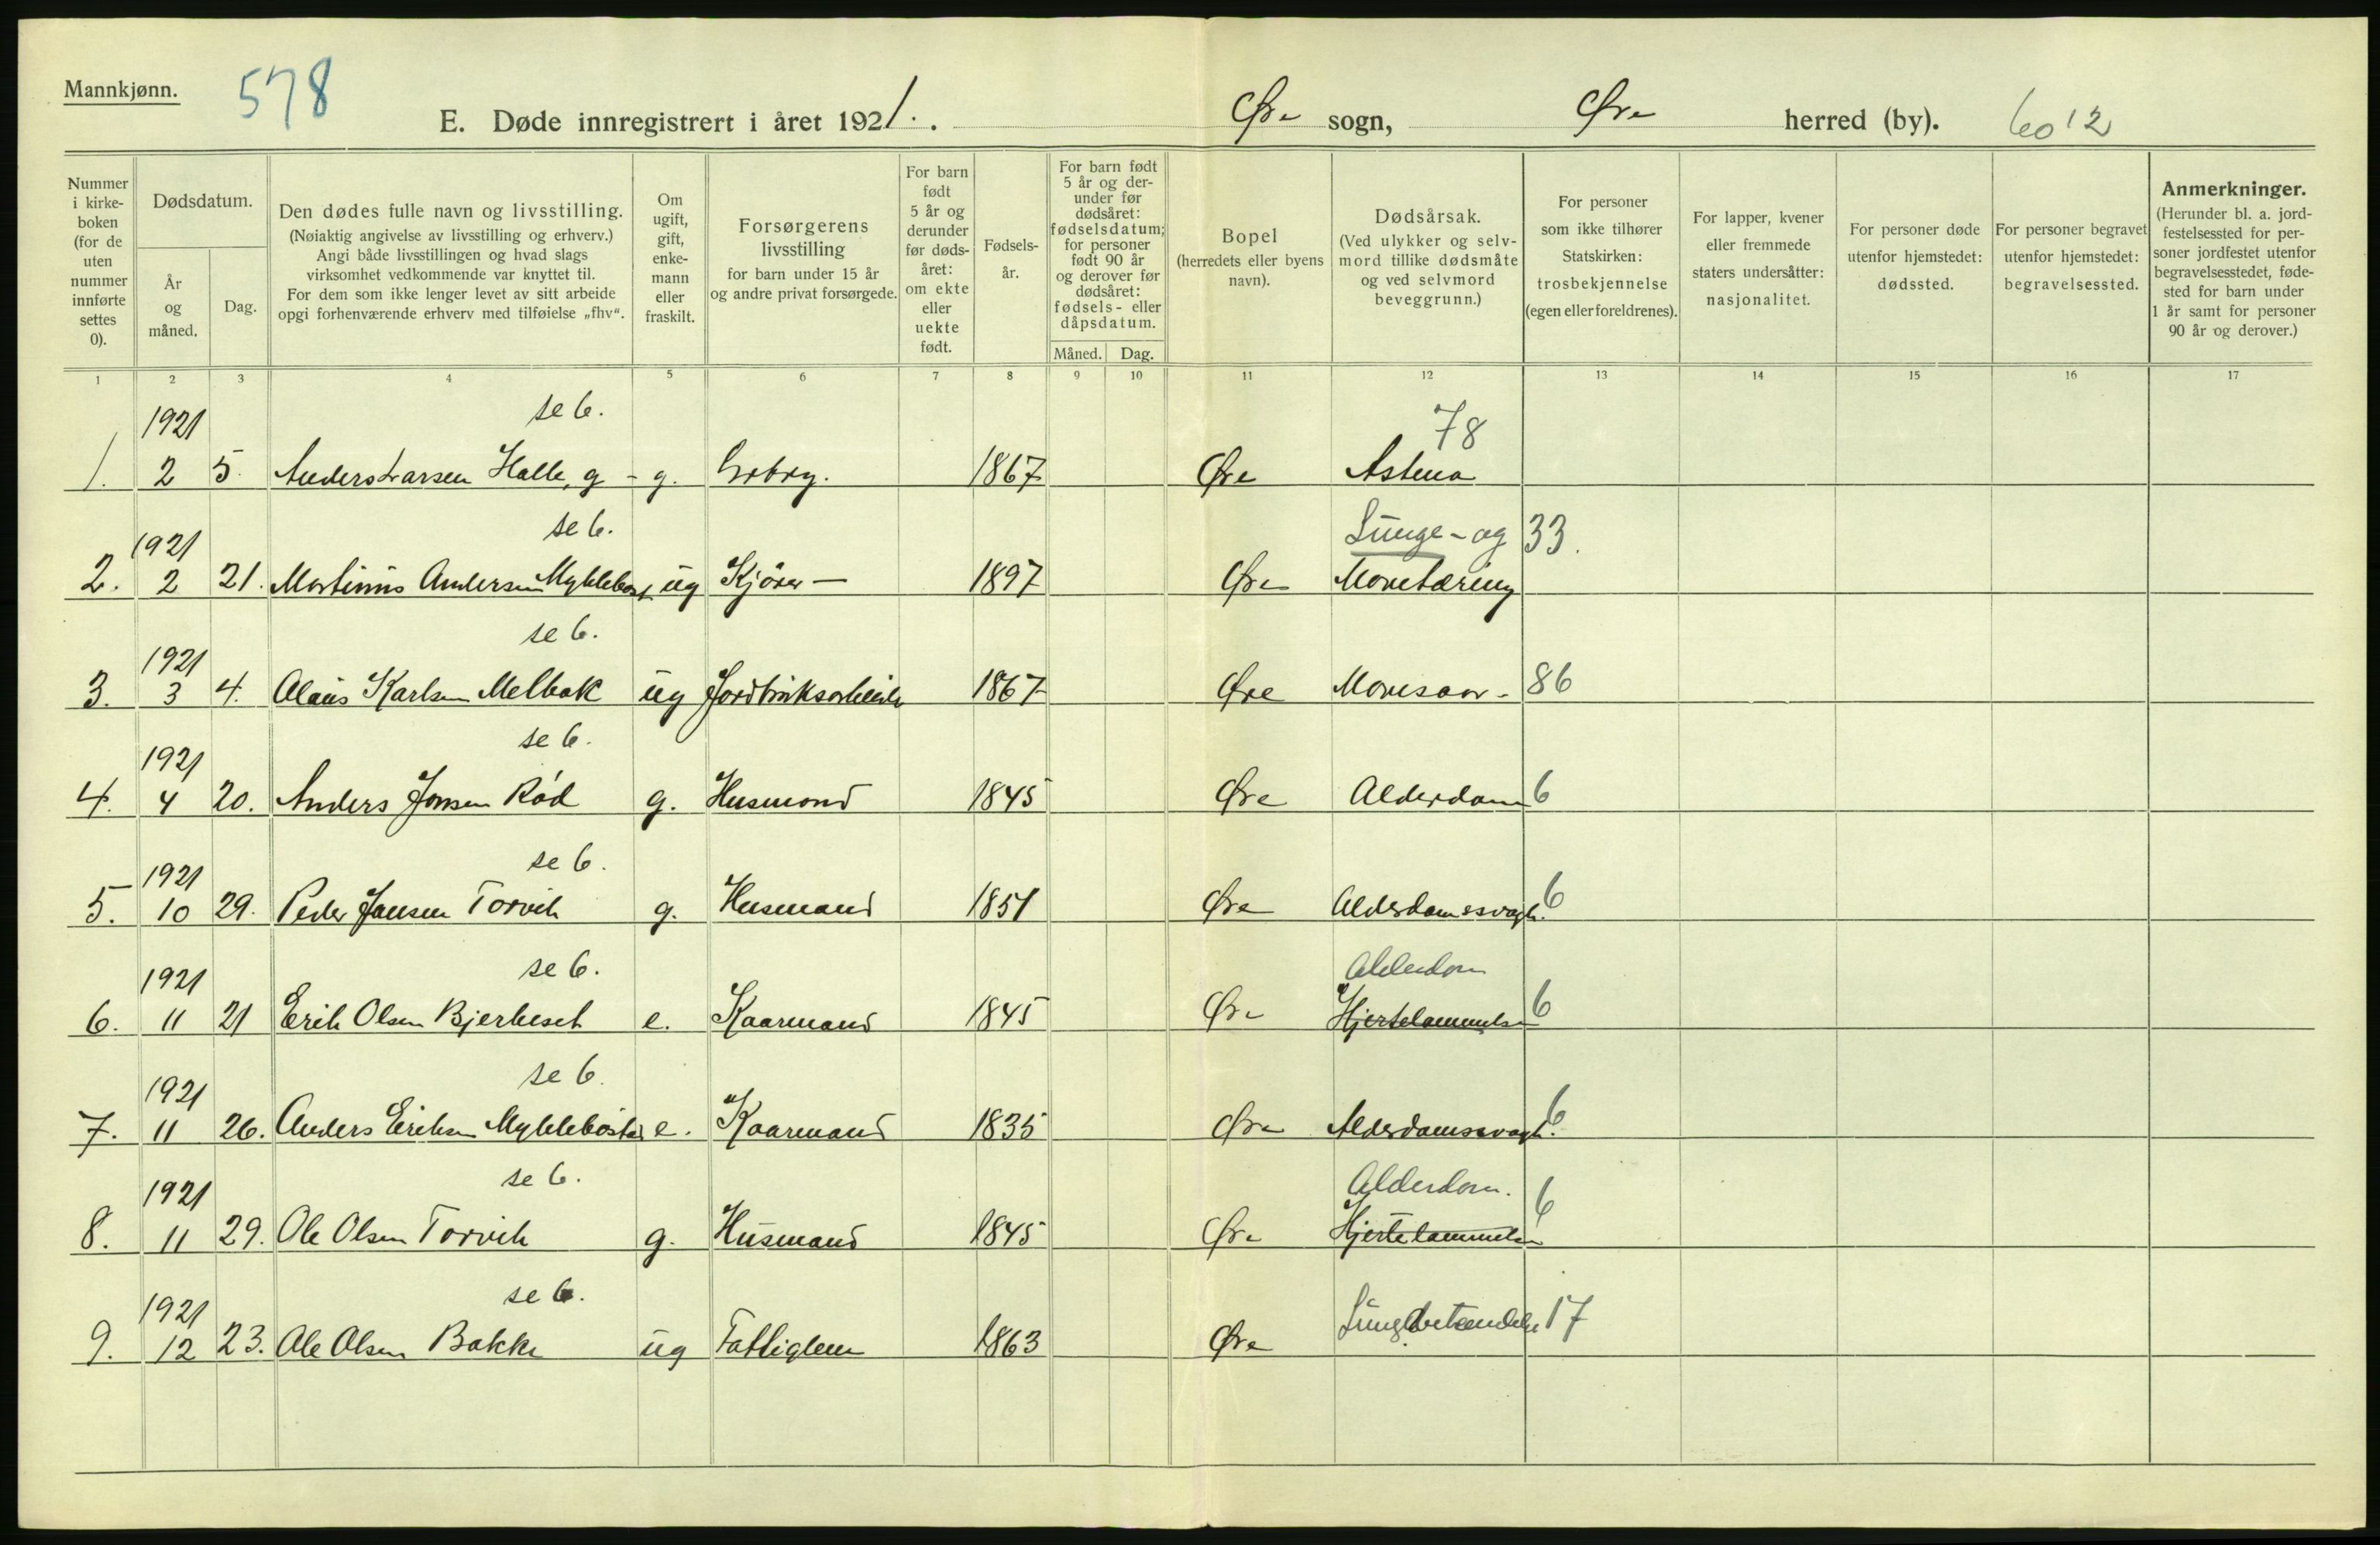 Mannkjønn.
578
E. Døde innregistrert i året 1921.
Øre sogn,
Øre herred (by).
6012
Nummer i kirkeboken (for de uten nummer innførte settes 0).
Dødsdatum.
År og måned.
Dag.
Den dødes fulle navn og livsstilling.
(Nøiaktig angivelse av livsstilling og erhverv.)
Angi både livsstillingen og hvad slags
virksomhet vedkommende var knyttet til.
For dem som ikke lenger levet av sitt arbeide
opgi forhenværende erhverv med tilføielse „fhv“.
Om ugift, gift, enkemann eller fraskilt.
Forsørgerens
livsstilling
for barn under 15 år
og andre privat forsørgede.
For barn født 5 år og derunder før dødsåret: om ekte eller uekte født.
Fødselsår.
For barn født 5 år og derunder før dødsåret: fødselsdatum; for personer født 90 år og derover før dødsåret: fødsels- eller dåpsdatum.
Måned.
Dag.
Bopel
(herredets eller byens navn).
Dødsårsak.
(Ved ulykker og selvmord tillike dødsmåte og ved selvmord beveggrunn.)
For personer som ikke tilhører Statskirken: trosbekjennelse (egen eller foreldrenes).
For lapper, kvener eller fremmede staters undersåtter: nasjonalitet.
For personer døde utenfor hjemstedet: dødssted.
For personer begravet utenfor hjemstedet: begravelsessted.
Anmerkninger.
(Herunder bl. a. jordfestelsessted for personer jordfestet utenfor begravelsesstedet, fødested for barn under 1 år samt for personer 90 år og derover.)
1 2 3 4 5 6 7 8 9 10 11 12 13 14 15 16 17
1921 se 6. 78
1. 2 5. Anders Larsen Halle, g - g. Grbrg. 1867 Øre Astma
1921 se 6. Lunge- og 33.
2. 2 21. Martinus Andersen Myklebost ug Kjörer — 1897 Øre Mavetæring
1921 se 6.
3. 3 4. Olaus Karlsen Melbak ug Jordbruksarbeider 1867 Øre Mavesaar - 86
1921 se 6.
4. 4 20. Anders Jonsen Röd g. Husmand 1845 Øre Alderdom 6
1921 se 6.
5. 10 29. Peder Jansen Torvik g. Husmand 1851 Øre Alderdomssvagh. 6
1921 se 6. Alderdom
6. 11 21 Erik Olsen Bjerkeset e. Kaarmand 1845 Øre Hjertelammelse 6
1921 se 6.
7. 11 26. Anders Eriksen Myklebostad e. Kaarmand 1835 Øre Alderdomssvagh. 6
1921 se 6. Alderdom. 6
8. 11 29. Ole Olsen Torvik g. Husmand 1845 Øre Hjertelammelse
1921 se 6. Lungebetændelse 17
9. 12 23. Ole Olsen Bakke ug Fattiglem 1863 Øre